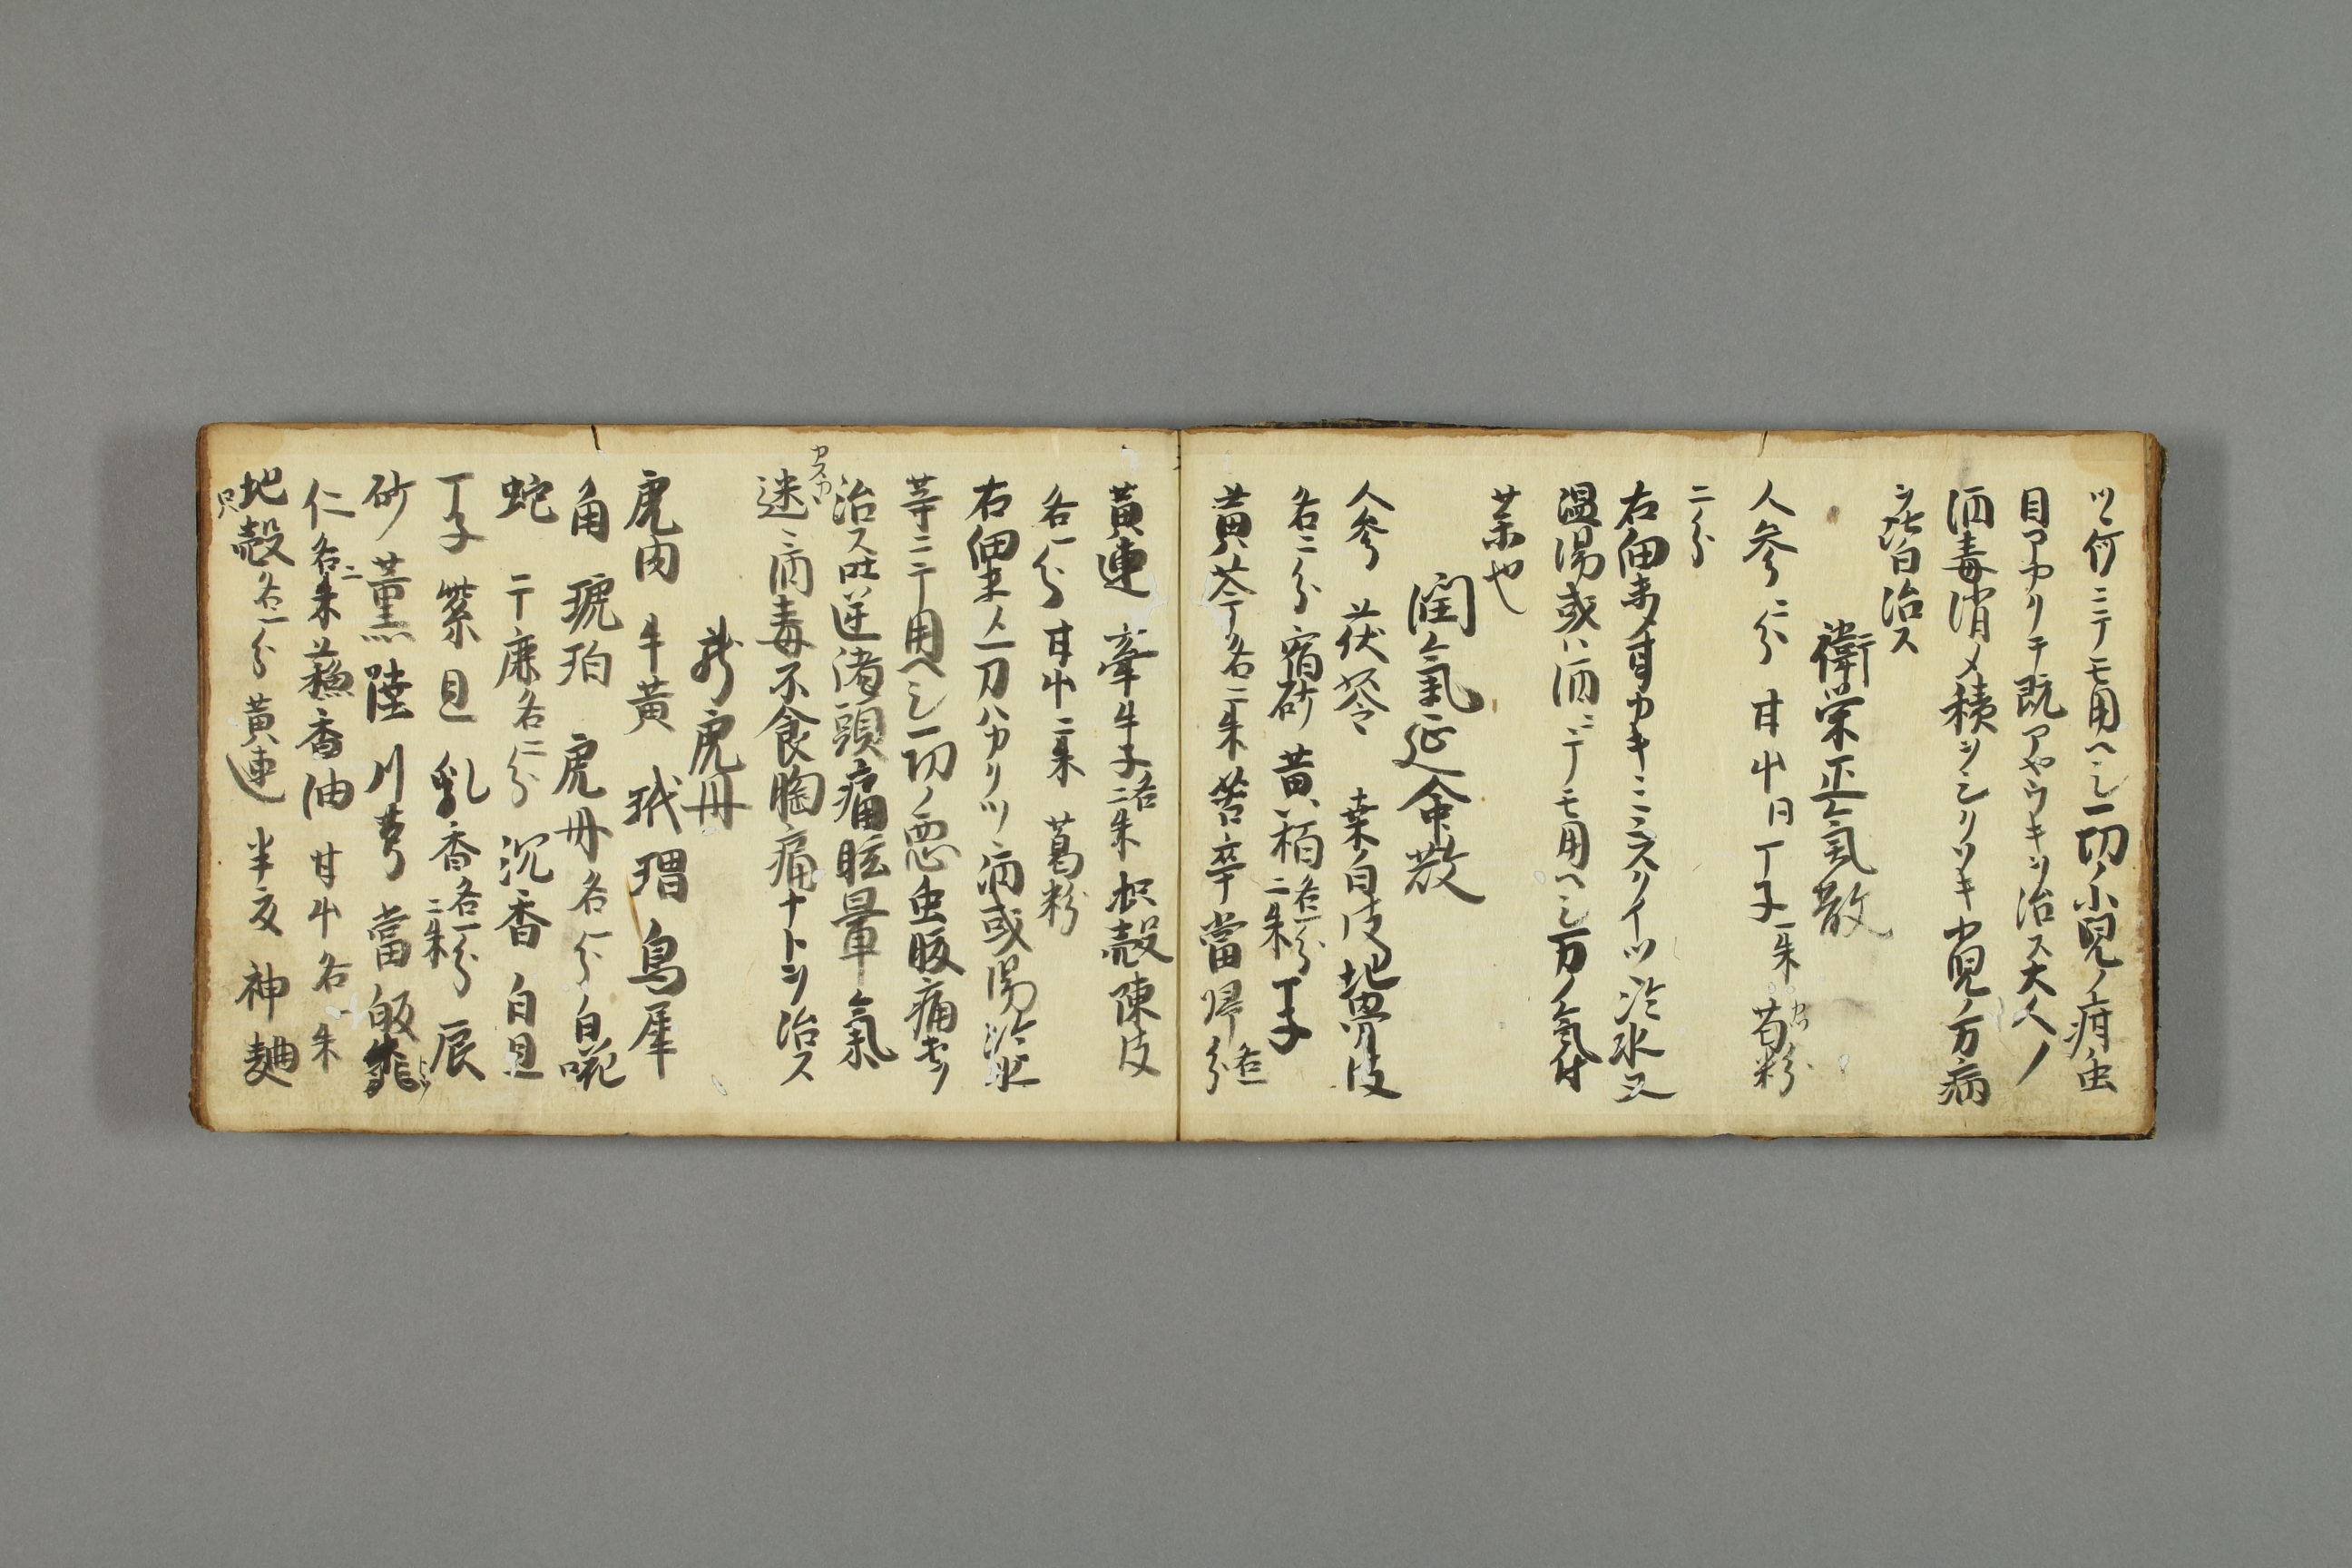 ツ何ニテモ用ヘシ一切ノ小児ノ疳虫
目アカリテ既アヤウキヲ治ス大人ノ
酒毒消メ積ヲシリツキ小児ノ万病
皆治ス
衛栄正氣散
人参二分 甘中日 丁子一朱 葛粉
二分
右細末メ耳カキニ三スクイツヽ冷水又
温湯或ハ酒ニテモ用ヘシ万ノ氣付
薬也
潤氣延命散
人参 茯苓 桒白皮 地骨皮
各二分 宿砂 黄栢各一分二朱 丁子
黄芩各二朱 苦辛 當帰各一分
黄連 牽牛子各二朱 枳殻 陳皮
各一分 甘中二朱 葛粉
右細末〆一刀ハカリツヽ酒或湯冷水
等ニテ用ヘシ一切ノ悪虫腹痛
治ス吐逆渚頭痛眩暈氣
迷ニ酒毒不食胸痛ナトヲ治ス
虎丹
虎肉 牛黄 玳瑁 烏犀
角 琥珀 虎丹各一分 白花
蛇 干廉各二分 沉香 白豆
丁子 紫豆 乳香各一分二朱 辰
砂 薫陸 川芎 當皈
仁各二朱 蘓香油 甘中各一朱
地殻各一分 黄連 半夏 神麯